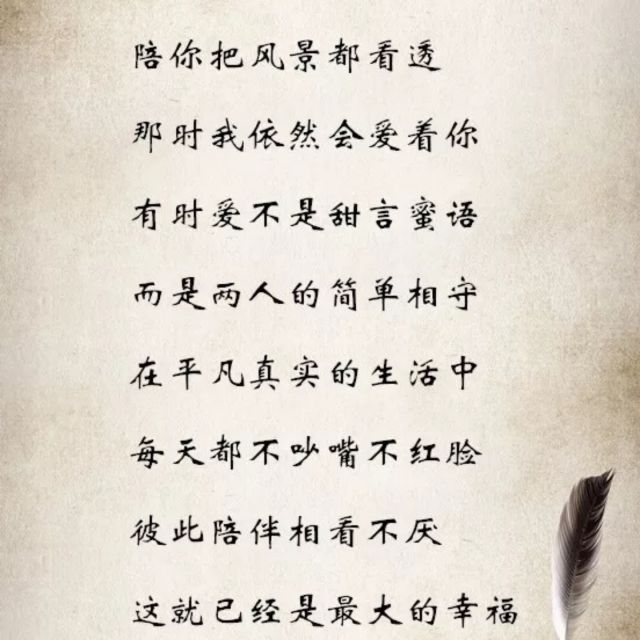 陪你把风景都看透
那时我依然会爱着你
有时爱不是甜言蜜语
而是两人的简单相守
在平凡真实的生活中
每天都不吵嘴不红脸
彼此陪伴相看不厌
这就已经是最大的幸福